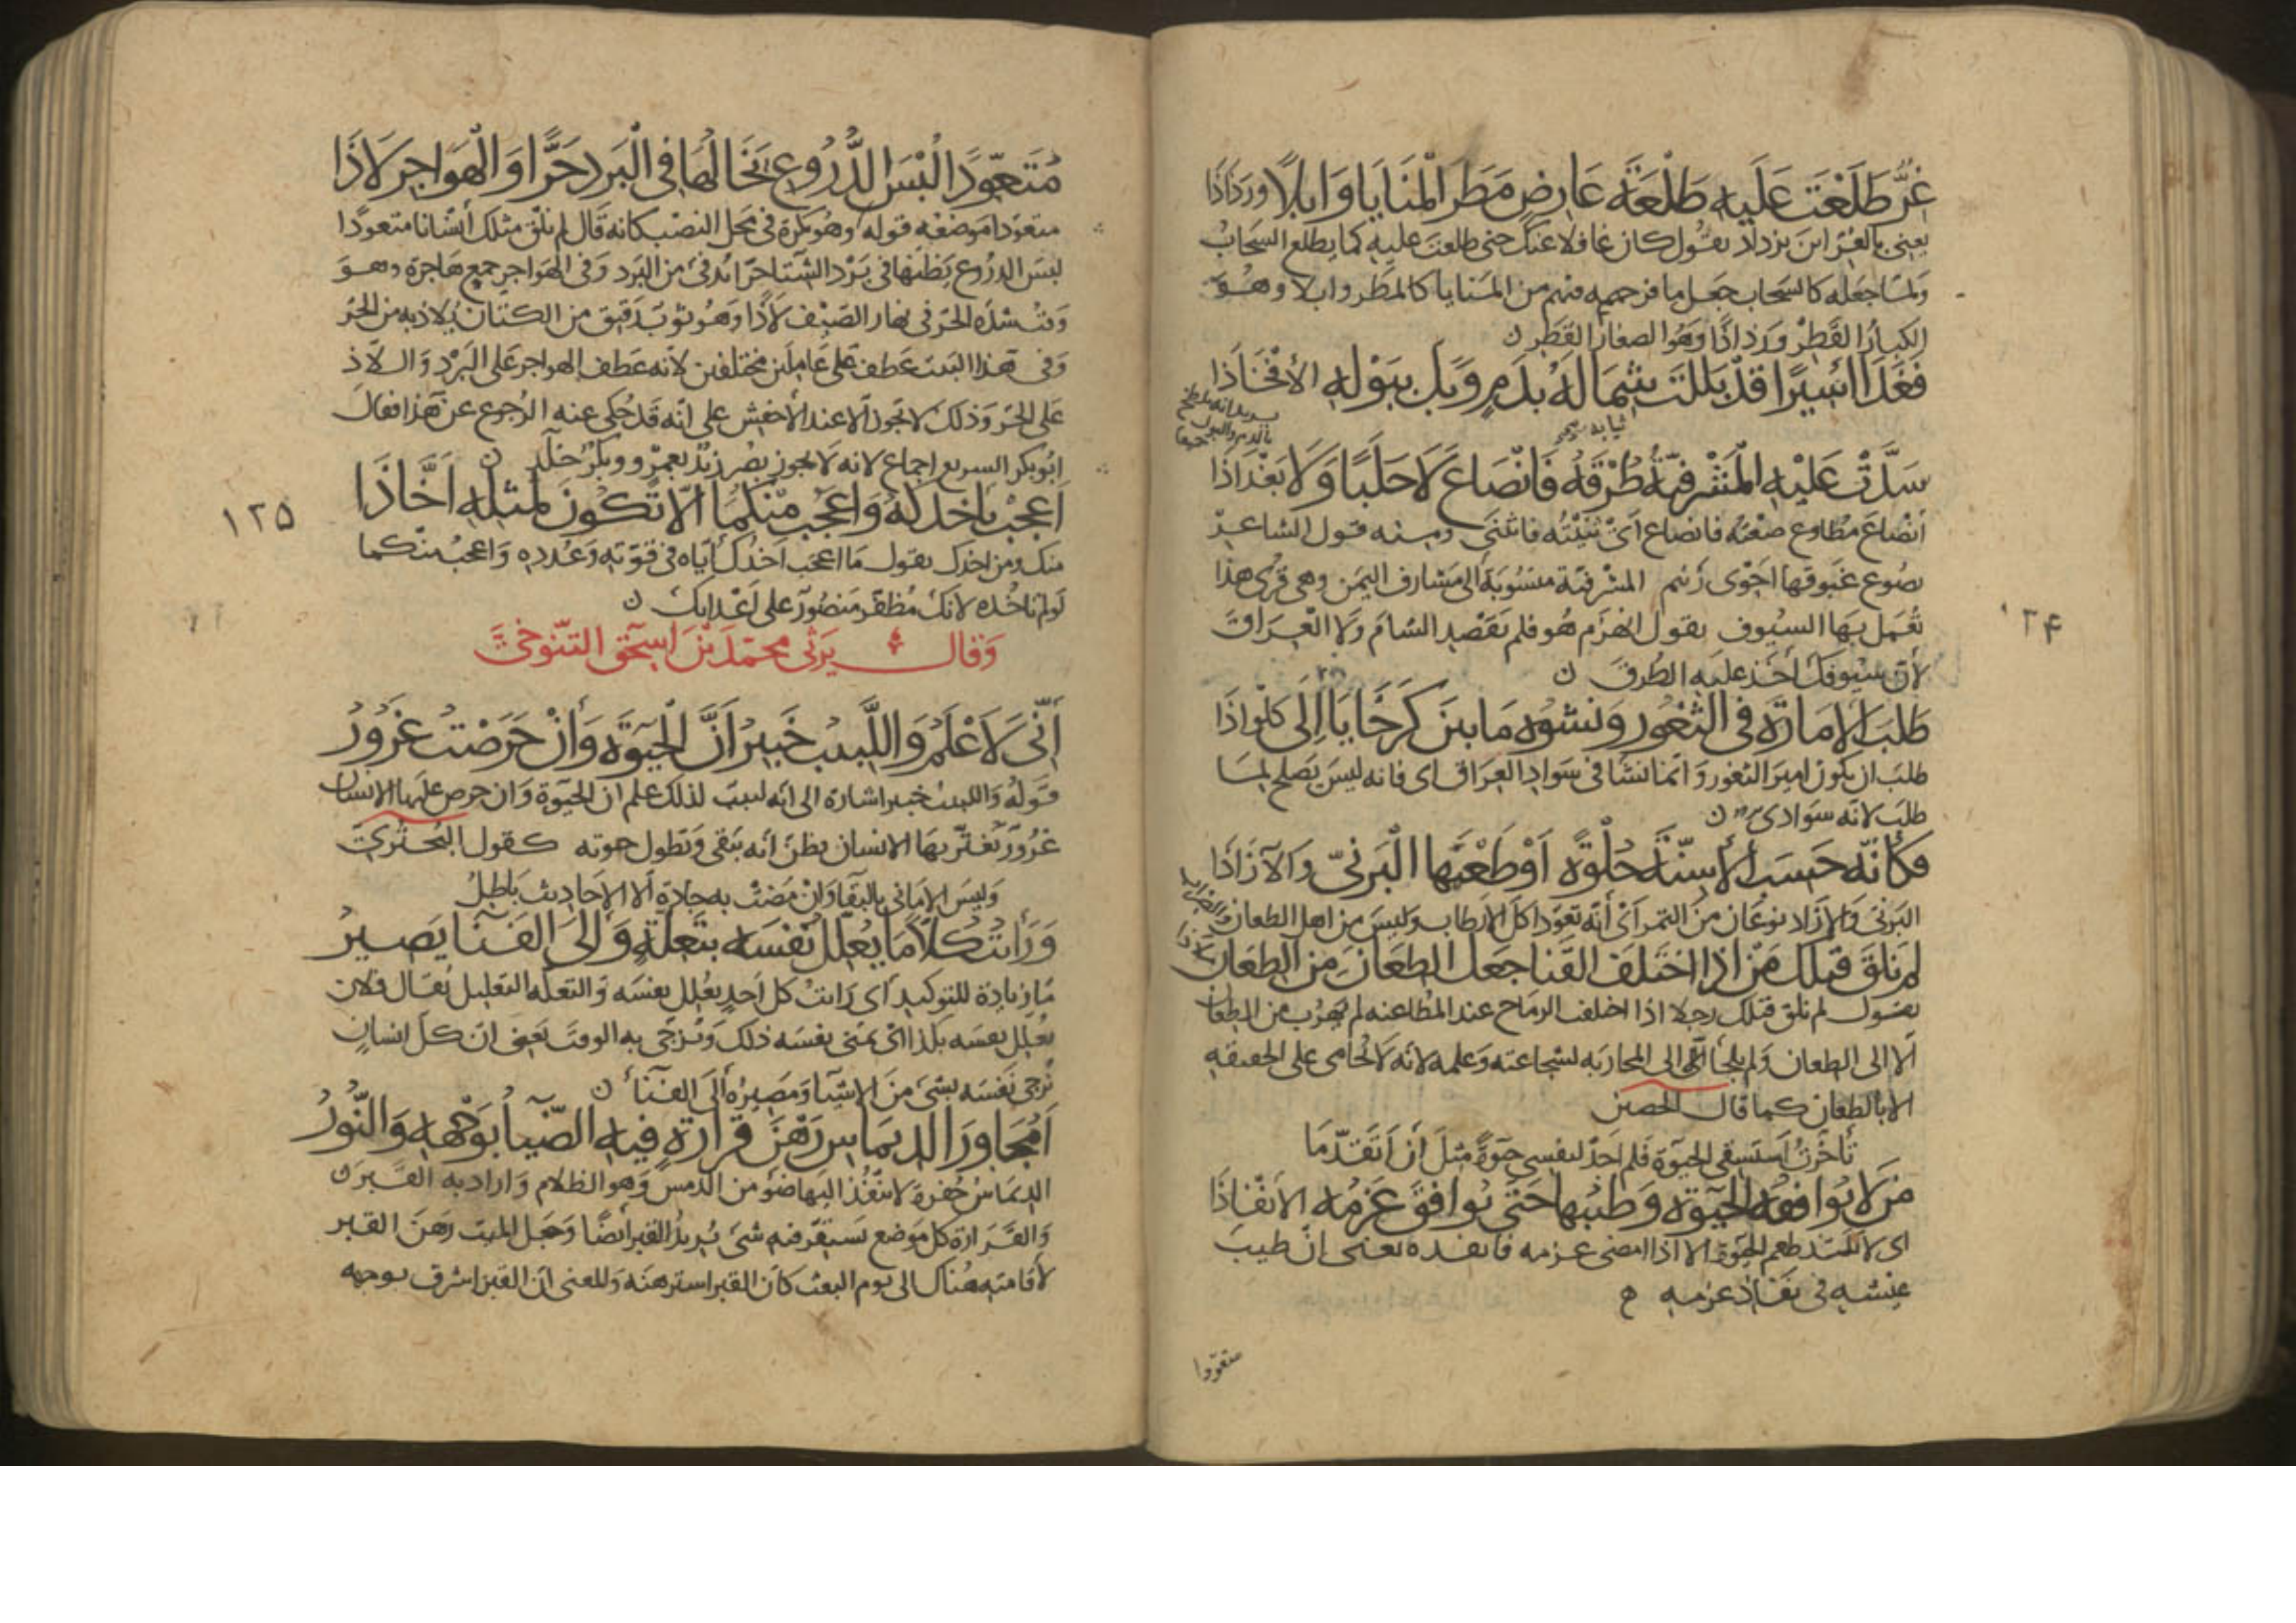 غِرٌّ طَلَعْتَ عَلَيهِ طَلْعَةَ عَارِضٍ مَطَرَ الْمَنَايَا وَابِلًا وَرَذَاذَا
يعنى بالغِرّ ابن يزداد يقول كان غافلا عنك حتى طلعت عليه كما يطلع السحاب
ولما جعله كالسحاب جعل ما فيهم من المنايا كالمطر وابلا وهو
الكبار القطر ورذاذا وهو الصغار القطر ن
فَغَدَا اسِيرًا قَدْ بَلَلتَ ثِيَابَهُ بِدَمٍ وَبَلَّ بِبَوْلِهِ الأَفْخَاذَا
سَدَّتْ عَلَيْهِ الْمَشْرَفِيَّةُ طُرْقَهُ فَانْصَاعَ لَا حَلَبًا وَلَا بَغْدَاذَا
انصاع مطاوع صعته فانصاع اى ثنيته فانثنى ومنه قول الشاعر
يصوع عنوقها احوى زنيم المشرفية منسوبة الى مشارف اليمن وهى قرى هذا
تعمل بها السيوف يقول انهزم هو فلم يقصد الشام ولا العراق
لان سيوفك اخذ عليه الطرق ن
١٢۴
طَلَبَ الإِمَارَةَ فِى الثُّغُورِ وَنشوُهُ مَا بَيْنَ كَرخَايَا إِلَى كَلْوَاذَا
طلب ان يكون امير الثغور وانما نشا فى سواد العراق اى فانه ليس يصلح لما
طلب لانه سوادى ن
فَكَأَنَّهُ حَسِبَ الأَسِنَّةَ حُلْوَةً أَوْ ظَنَّهَا الْبَرْنِىَّ وَالآزَاذَا
البرنى والازاذ نوعان من التمر اى أنه تعود اكل الارطاب وليس من اهل الطعان والضراب
لم يَلقَ قَبلَكَ مَنْ اذا اختَلَفَ القَنا جَعَلَ الطِّعَانَ مِنَ الطِّعَانِ مَلَاذَا
يقول لم تلق قبلك رجلا اذا اختلف الرماح عند المطاعنه لم يهرب من الطعان
الا الى الطعان ولم يلجأ الى المحاربه لشجاعته وعلمه لانه لا يحامى على الحقيقه
الا بالطعان كما قال الحصين
تأخرتُ استبقى الحيوة فلم اجد لنفسى حيوةً مثل أن أتقدّما
مَن لا يُوَافِقُهُ الحَيٰوةُ وَطِيبُهَا حَتّى يُوَافِقَ عَزمُهُ الانفَاذَا
اى لا يلتذ طعم الحيوة الا اذا امضى عزمه فانفذه يعنى ان طيب
عيشه فى نفاذ عزمه
متعوّدا
مُتَعَوِّدًا لُبْسَ الدُّرُوعِ يَخَالُهَا فِى الْبَرْدِ خَزًّا وَالْهَوَاجِرِ لَاذَا
متعودا موضعه قوله وهو نكرة فى محل النصب كانه قال لم تلق مثلك انسانا متعودا
لبس الدروع يظنها فى برد الشتا خزا يُدفئ من البرد وفى الهواجر جمع هاجرة وهو
وقت شدة الحر فى نهار الصيف لاذا وهو ثوب رقيق من الكتان يلاذ به من الحر
وفى هذا البيت عطف على عاملين مختلفين لانه عطف الهواجر على البرد واللاذ
على الخز وذلك لا يجوز الا عند الاخفش على انه قد حكى عنه الرجوع عن هذا فقال
ابو بكر السريع اجماع لانه لا يجوز زيد بعمرو وبكر خالد ن
أَعْجِبْ بِأَخْذِكَهُ وَأَعْجَبُ مِنْكُمَا أَلَّا تَكُونَ لِمِثْلِهِ أَخَّاذَا
١٢۵
منك ومن اخذك يقول ما اعجب اخذك اياه فى قوته وعُدده واعجب منكما
لو لم تأخذه لانك مظفر منصور على اعدايك ن
وَقَالَ يَرثى محمّدَ بنَ اسحٰق التّنوخىَّ
اِنّى لَأَعْلَمُ وَاللَّبِيبُ خَبِيرُ أَنَّ الْحَيٰوةَ وَإِنْ حَرَصْتَ غُرُورُ
قوله واللبيب خبير اشارة الى انه لبيب لذلك علم ان الحيوة وان حرص عليها الانسان
غرور يغترّ بها الانسان يظن انه يبقى وتطول حيوته كقول البحترى
وليس الامانى بالبقا وان مضت به عادة الا الاحاديث باطل
وَرَأَيْتُ كُلًّا مَا يُعَلِّلُ نَفْسَهُ بِتَعِلَّةٍ وَإِلَى الفَنَآ يَصِيرُ
ما زيادة للتوكيد اى رايت كل احدٍ يعلل نفسه والتعلة التعليل يقال فلان
يعلل نفسه بكذا اى يمنى نفسه ذلك ويزجى به الوقت يعنى ان كل انسان
يرجى نفسه بشئ من الاشيا ومصيره الى الفنآ ن
اَمُجَاوِرَ الدِيمَاسِ رَهْنَ قَرَارَةٍ فِيهِ الضِّيآ بِوَجْهِهِ وَالنُّورُ
الديماس حفرة لا ينفذ اليها ضو من الدمس وهو الظلام واراد به القبر
والقرارة كل موضع يستقر فيه شئ يريد القبر ايضا وجعل الميت رهن القبر
لاقامته هناك الى يوم البعث كان القبر استرهنه والمعنى ان القبر اشرق بوجهه